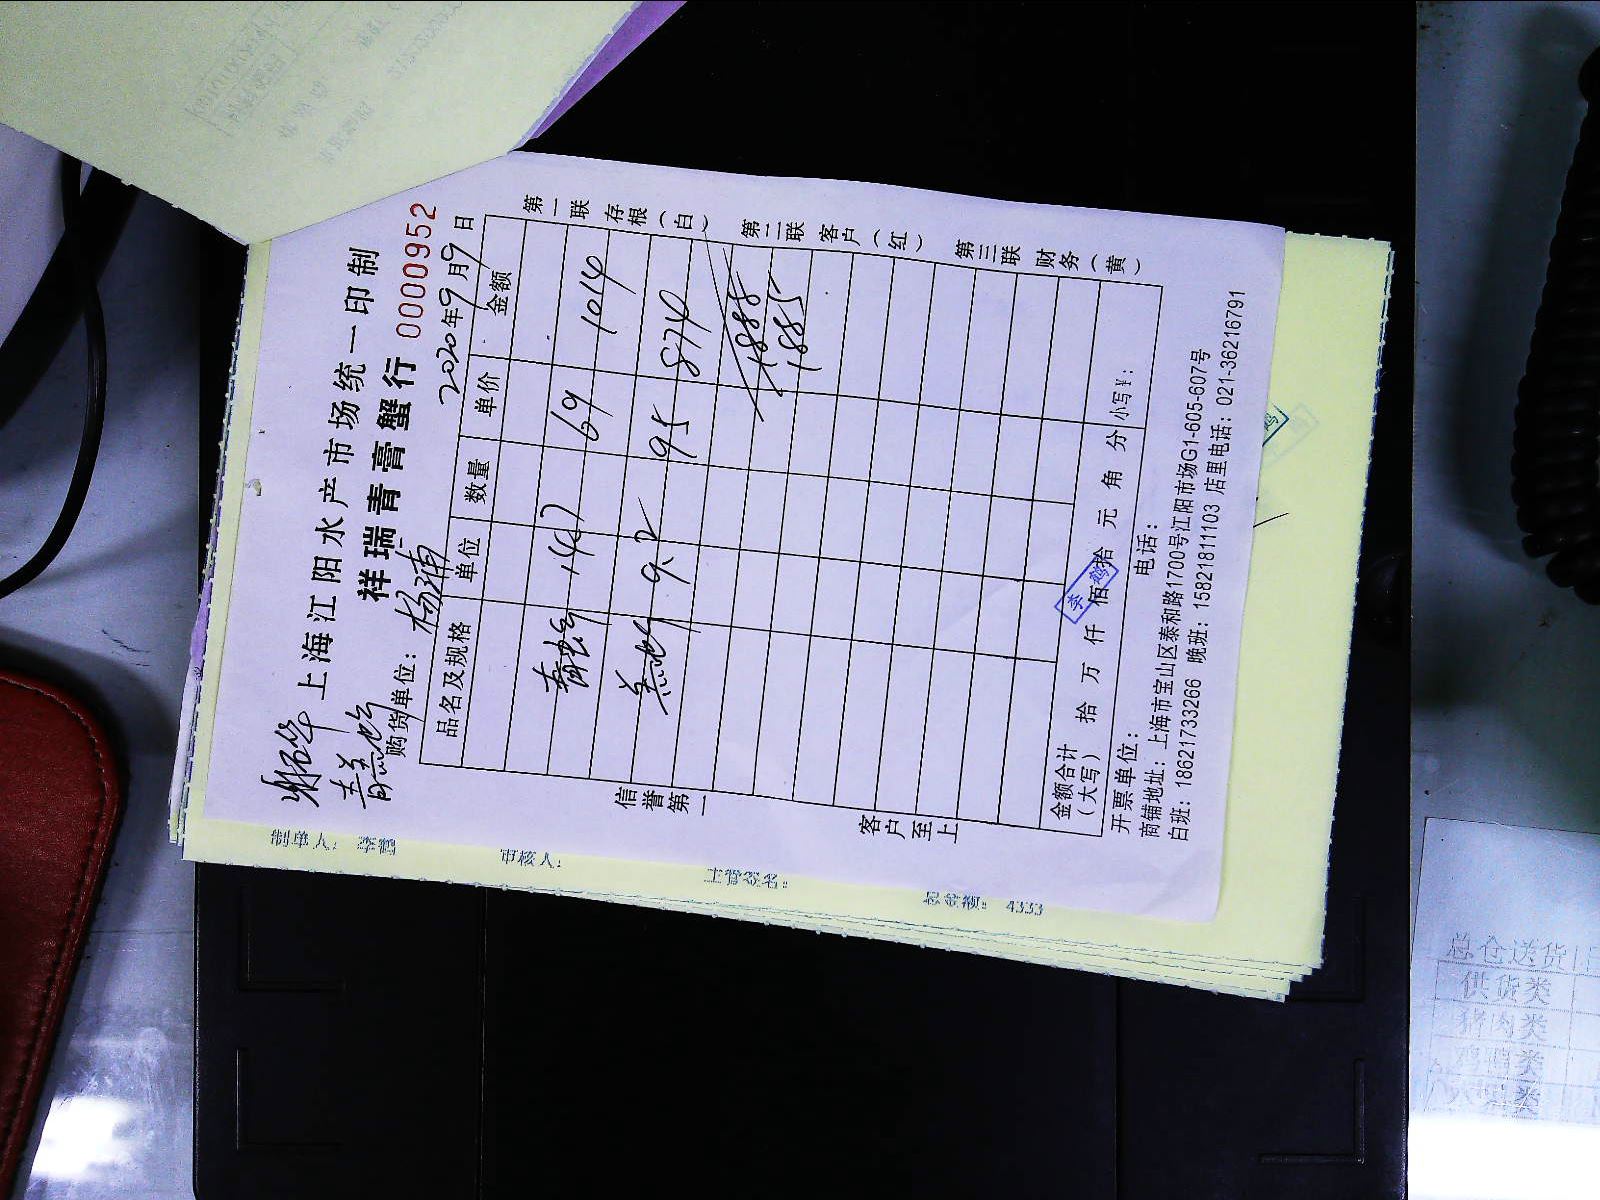 上海江阳水产市场统一印制
祥瑞青膏蟹行 0000952
购货单位: 杨浦 2020年9月9日
品名及规格 单位 数量 单价 金额
14.7 69 1014
9.2 95 874
1885
1885
金额合计(大写) 拾 万 仟 佰 拾 元 角 分 小写¥:
开票单位: 电话:
商铺地址: 上海市宝山区泰和路1700号江阳市场G1-605-607号
白班: 18621733266 晚班: 15821811103 店里电话: 021-36216791
第一联 存根(白)
第二联 客户(红)
第三联 财务(黄)
信誉第一
客户至上
制单人:
审核人:
4333
总仓送货
供货类
猪肉类
鸡鸭类